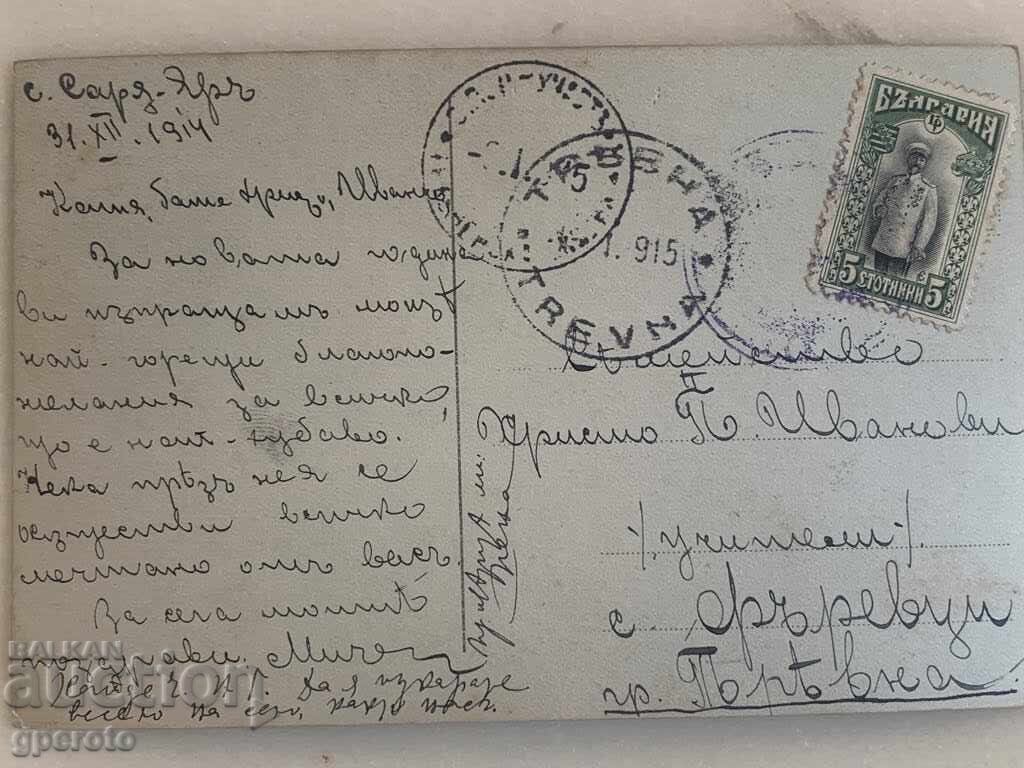 с. Саръ-Яръ
31.XII.1914
Кания, бате Христо, Иванч
За новата година
ви изпращамъ моитѣ
най-горещи благопо-
желания за всичко,
що е най-хубаво.
Нека прѣзъ нея се
осъществи всичко
мечтано отъ васъ.
За сега моитѣ
поздрави. Мичо
Да я изкараме
весело
ТРѢВНА
1.915
TREVNA
БЪЛГАРИЯ
5 СТОТИНКИ 5
Семейство
Христо П. Иванови
/учители/
с. Фъревци
гр. Трѣвна
BALKAN
auction
gperoto